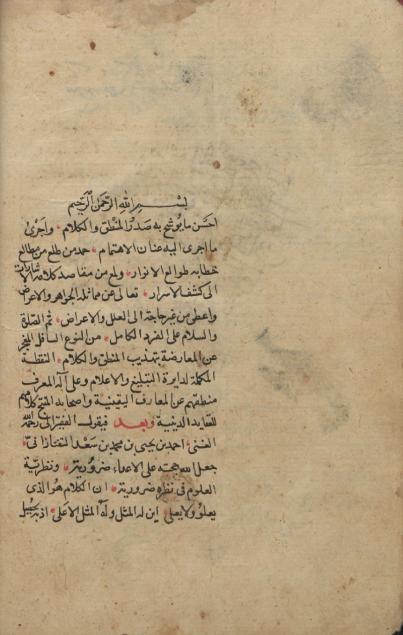 بسم الله الرحمن الرحيم
احسن ما يوشح به صدر المنطق والكلام واحرى
ما اجرى اليه عنان الاهتمام حمد من طلع من مطالع
خطابه طوالع الانوار ولمع من مقاصد كلامه اشارات
الى كشف الاسرار تعالى عن مماثلة الجواهر والاعراض
واعطى من غير حاجة الى العلل والاعراض ثم الصلوة
والسلام على الفرد الكامل من النوع السافل المنجر
عن المعارضة بتهذيب المنطق والكلام النقطة
المكملة لدايرة التبليغ والاعلام وعلى آله المعرف
منطقهم عن المعارف اليقينية واصحابه المنبئ كلامهم
للعقايد الدينية وبعد فيقول الفقير الى رحمة الله
الغني احمد بن يحيى بن محمد بن سعد التفتازاني
جعل الله حجته على الاعداء ضرورية ونظرية
العلوم في نظره ضرورية ان الكلام هو الذى
يعلو ولا يعلى اين له المثل وله المثل الاعلى اذ به